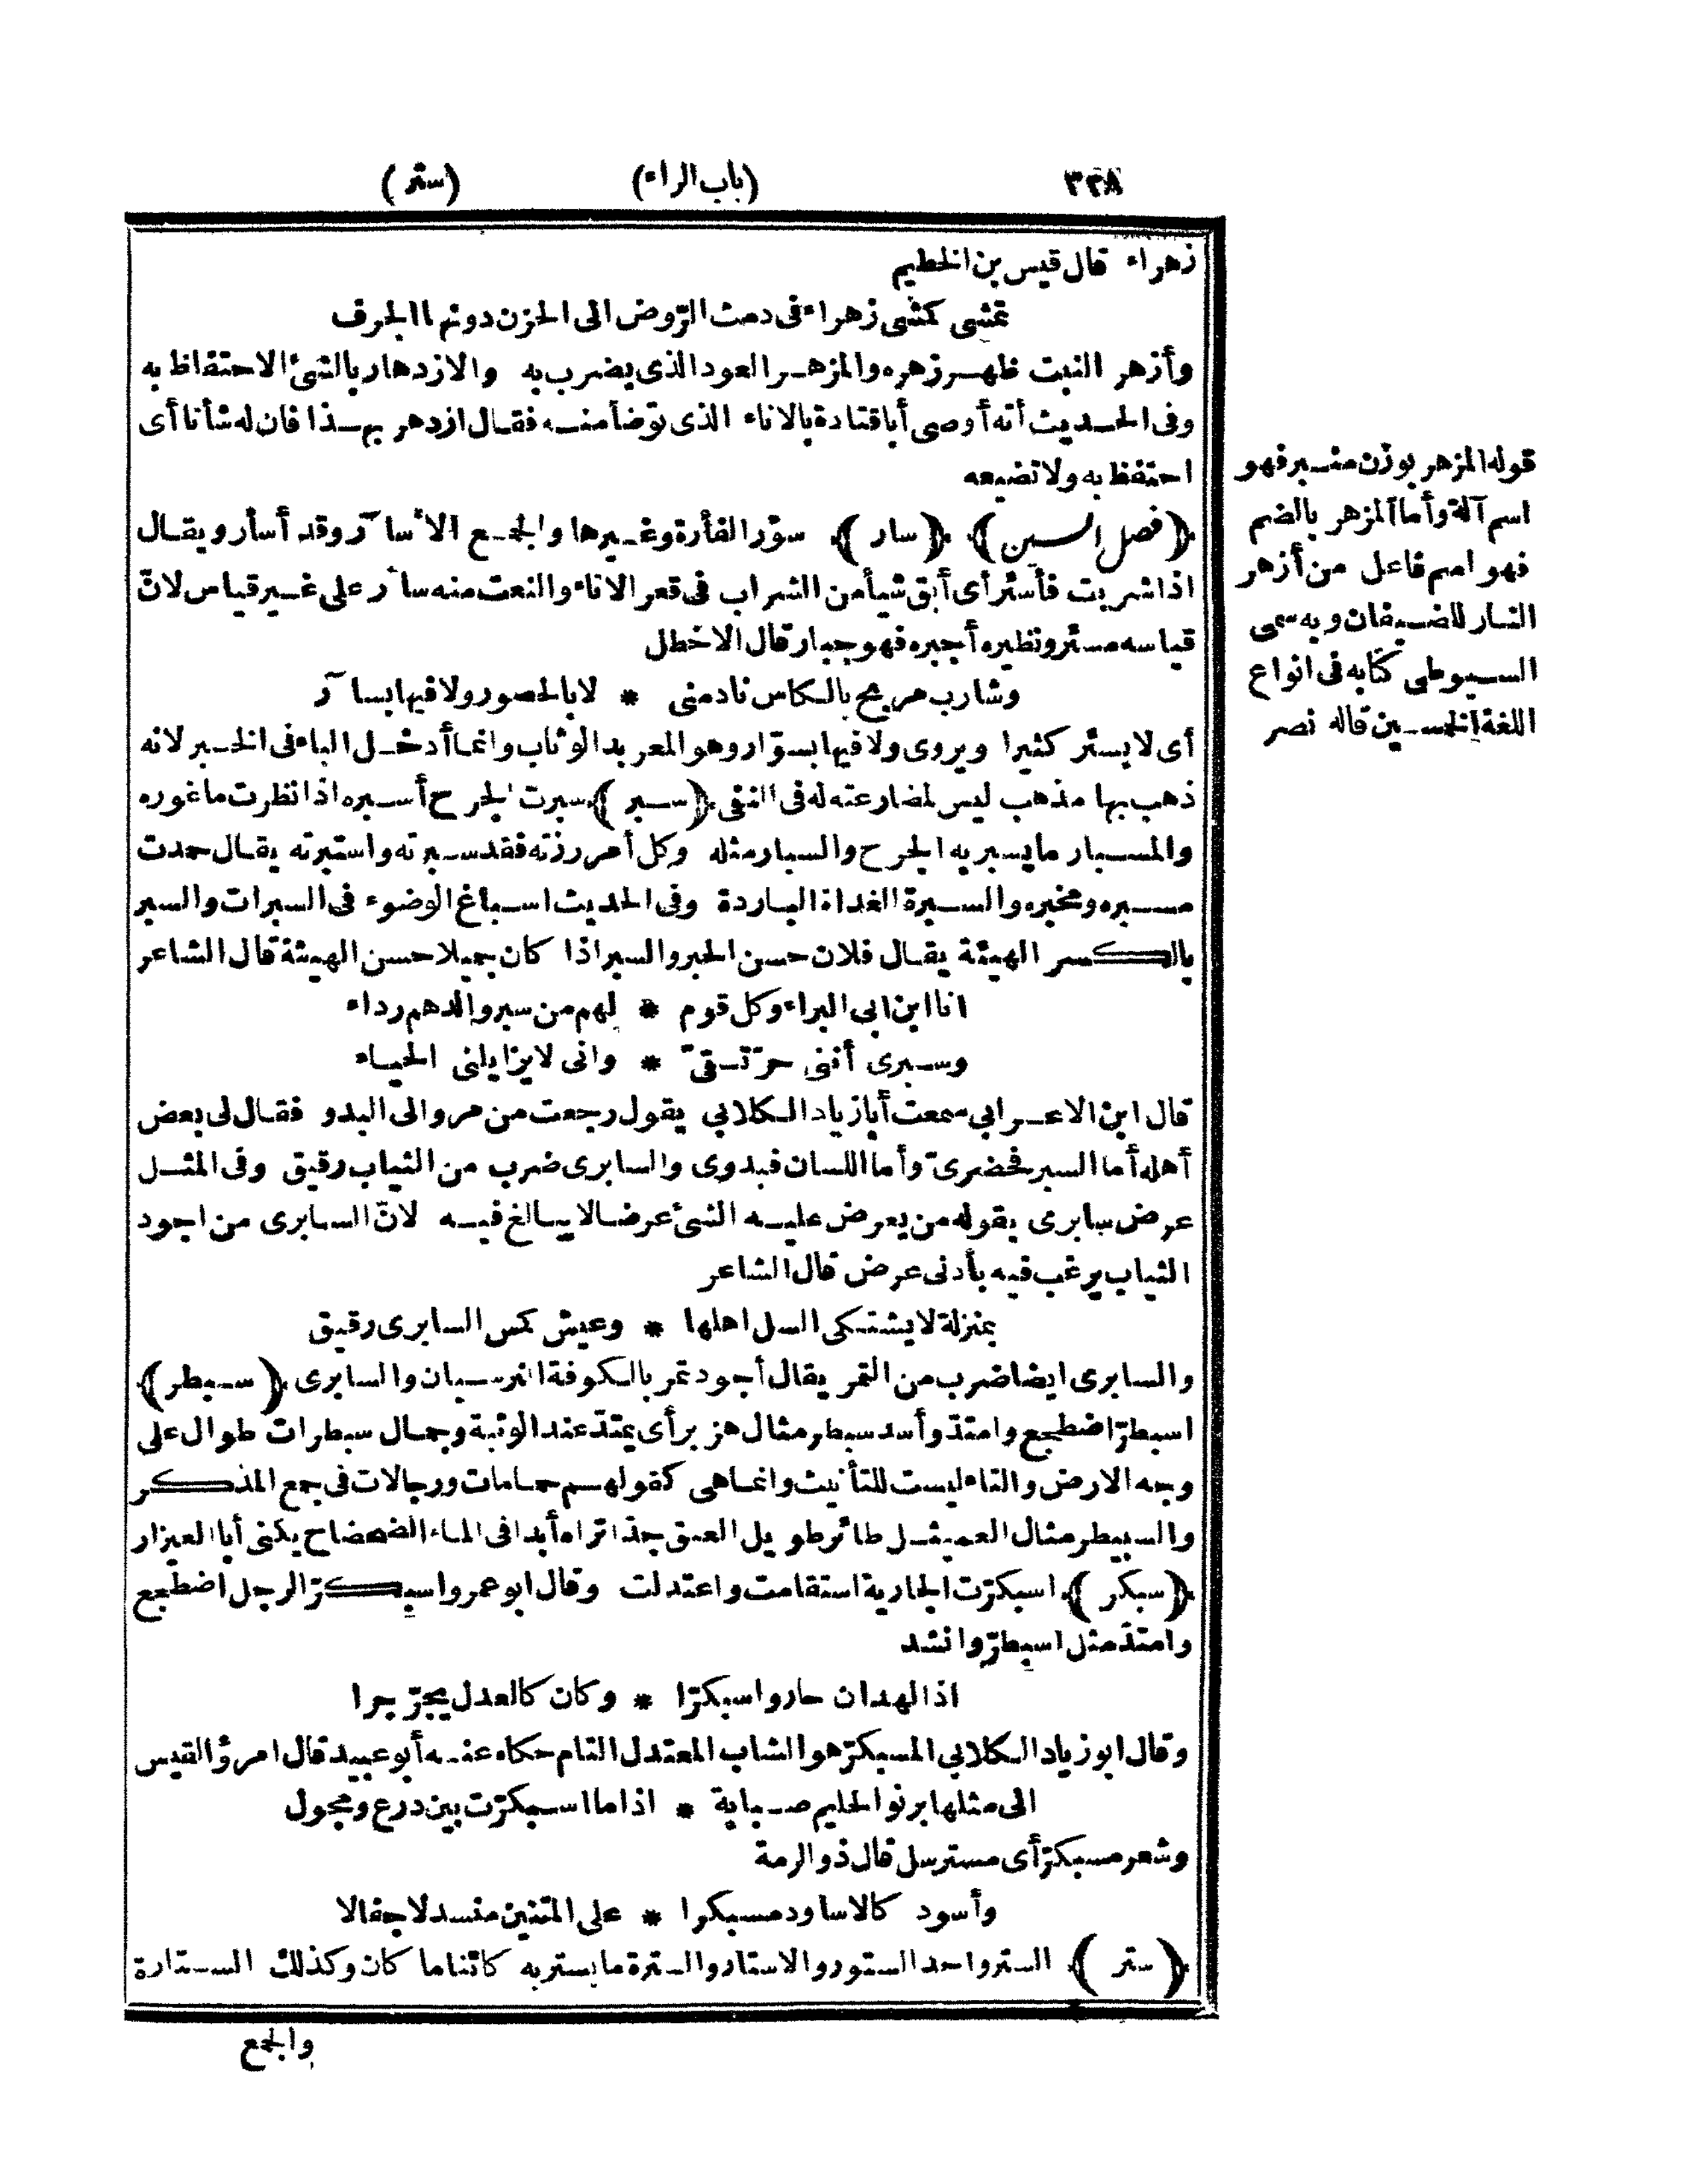 ٣٣٨ (باب الراء) (ستر)
زهراء قال قيس بن الخطيم
تمشى كمشى زهراء فى دمث الرّوض الى الحزن دونها الجرف
وأزهر النبت ظهر زهره والمزهر العود الذى يضرب به والازدهار بالشئ الاحتفاظ به
وفى الحديث أنه أوصى أبا قتادة بالاناء الذى توضأ منه فقال ازدهر بهذا فان له شأنا أى
احتفظ به ولا تضيعه
﴿فصل السين﴾ ﴿سار﴾ سؤر الفأرة وغيرها والجمع الأسآر وقد أسأر ويقال
اذا شربت فأسئر أى أبق شيأ من الشراب فى قعر الاناء والنعت منه سأر على غير قياس لانّ
قياسه مسئر ونظيره أجبره فهو جبار قال الاخطل
وشارب مربح بالكاس نادمنى * لا بالحصور ولا فيها بسآر
أى لا يسئر كثيرا ويروى ولا فيها بسوّار وهو المعربد الوثاب وانما أدخل الباء فى الخبر لانه
ذهب بها مذهب ليس لمضارعته له فى النفى ﴿سبر﴾ سبرت الجرح أسبره اذا نظرت ما غوره
والمسبار ما يسبر به الجرح والسبار مثله وكل أمر رزته فقد سبرته واستبرته يقال حمدت
مسبره ومخبره والسبرة الغداة الباردة وفى الحديث اسباغ الوضوء فى السبرات والسبر
بالكسر الهيئة يقال فلان حسن الحبر والسبر اذا كان جميلا حسن الهيئة قال الشاعر
انا ابن ابى البراء وكل قوم * لهم من سبر والدهم رداء
وسبرى أننى حرّ تقىّ * وانى لا يزايلنى الحياء
قال ابن الاعرابى سمعت أبا زياد الكلابى يقول رجعت من مرو الى البدو فقال لى بعض
أهله أما السبر فحضرىّ وأما اللسان فبدوى والسابرى ضرب من الثياب رقيق وفى المثل
عرض سابرى يقوله من يعرض عليه الشئ عرضا لا يبالغ فيه لانّ السابرى من اجود
الثياب يرغب فيه بأدنى عرض قال الشاعر
بمنزلة لا يشتكى السل اهلها * وعيش كمس السابرى رقيق
والسابرى ايضا ضرب من التمر يقال أجود تمر بالكوفة النرسيان والسابرى ﴿سبطر﴾
اسبطرّ اضطجع وامتدّ وأسد سبطر مثال هزبر أى يمتدّ عند الوثبة وجمال سبطرات طوال على
وجه الارض والتاء ليست للتأنيث وانما هى كقولهم حمامات ورجالات فى جمع المذكر
والسبيطر مثال العميثل طائر طويل العنق جدّا تراه أبدا فى الماء الضحضاح يكنى أبا العيزار
﴿سبكر﴾ اسبكرّت الجارية استقامت واعتدلت وقال ابو عمرو اسبكرّ الرجل اضطجع
وامتدّ مثل اسبطرّ وانشد
اذا الهدان حار واسبكرّا * وكان كالعدل يجرّ جرا
وقال ابو زياد الكلابى المسبكرّ هو الشاب المعتدل التام حكاه عنه أبو عبيد قال امرؤ القيس
الى مثلها يرنو الحليم صبابة * اذا ما اسبكرّت بين درع ومجول
وشعر مسبكرّ أى مسترسل قال ذو الرمة
وأسود كالاساود مسبكرا * على المتنين منسدلا جفالا
﴿ستر﴾ الستر واحد الستور والاستار والسترة ما يستر به كائنا ما كان وكذلك الستارة
والجمع
قوله المزهر بوزن منبر فهو
اسم آلة وأما المزهر بالضم
فهو اسم فاعل من أزهر
النار للضيفان وبه سمى
السيوطى كتابه فى انواع
اللغة الخمسين قاله نصر